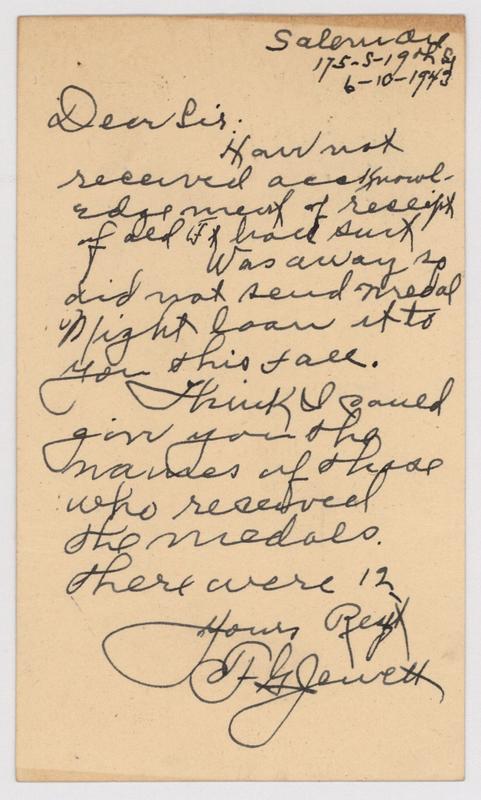 Salem Ore
175-S-19th St
6-10-1943
Dear Sir:
Have not
received acknowl-
edgement of receipt
of old I had sent
Was away so
did not send medal
Might loan it to
you this fall.
Think I could
give you the
names of those
who received
the medals.
There were 12
Yours Respt
F G Jewett